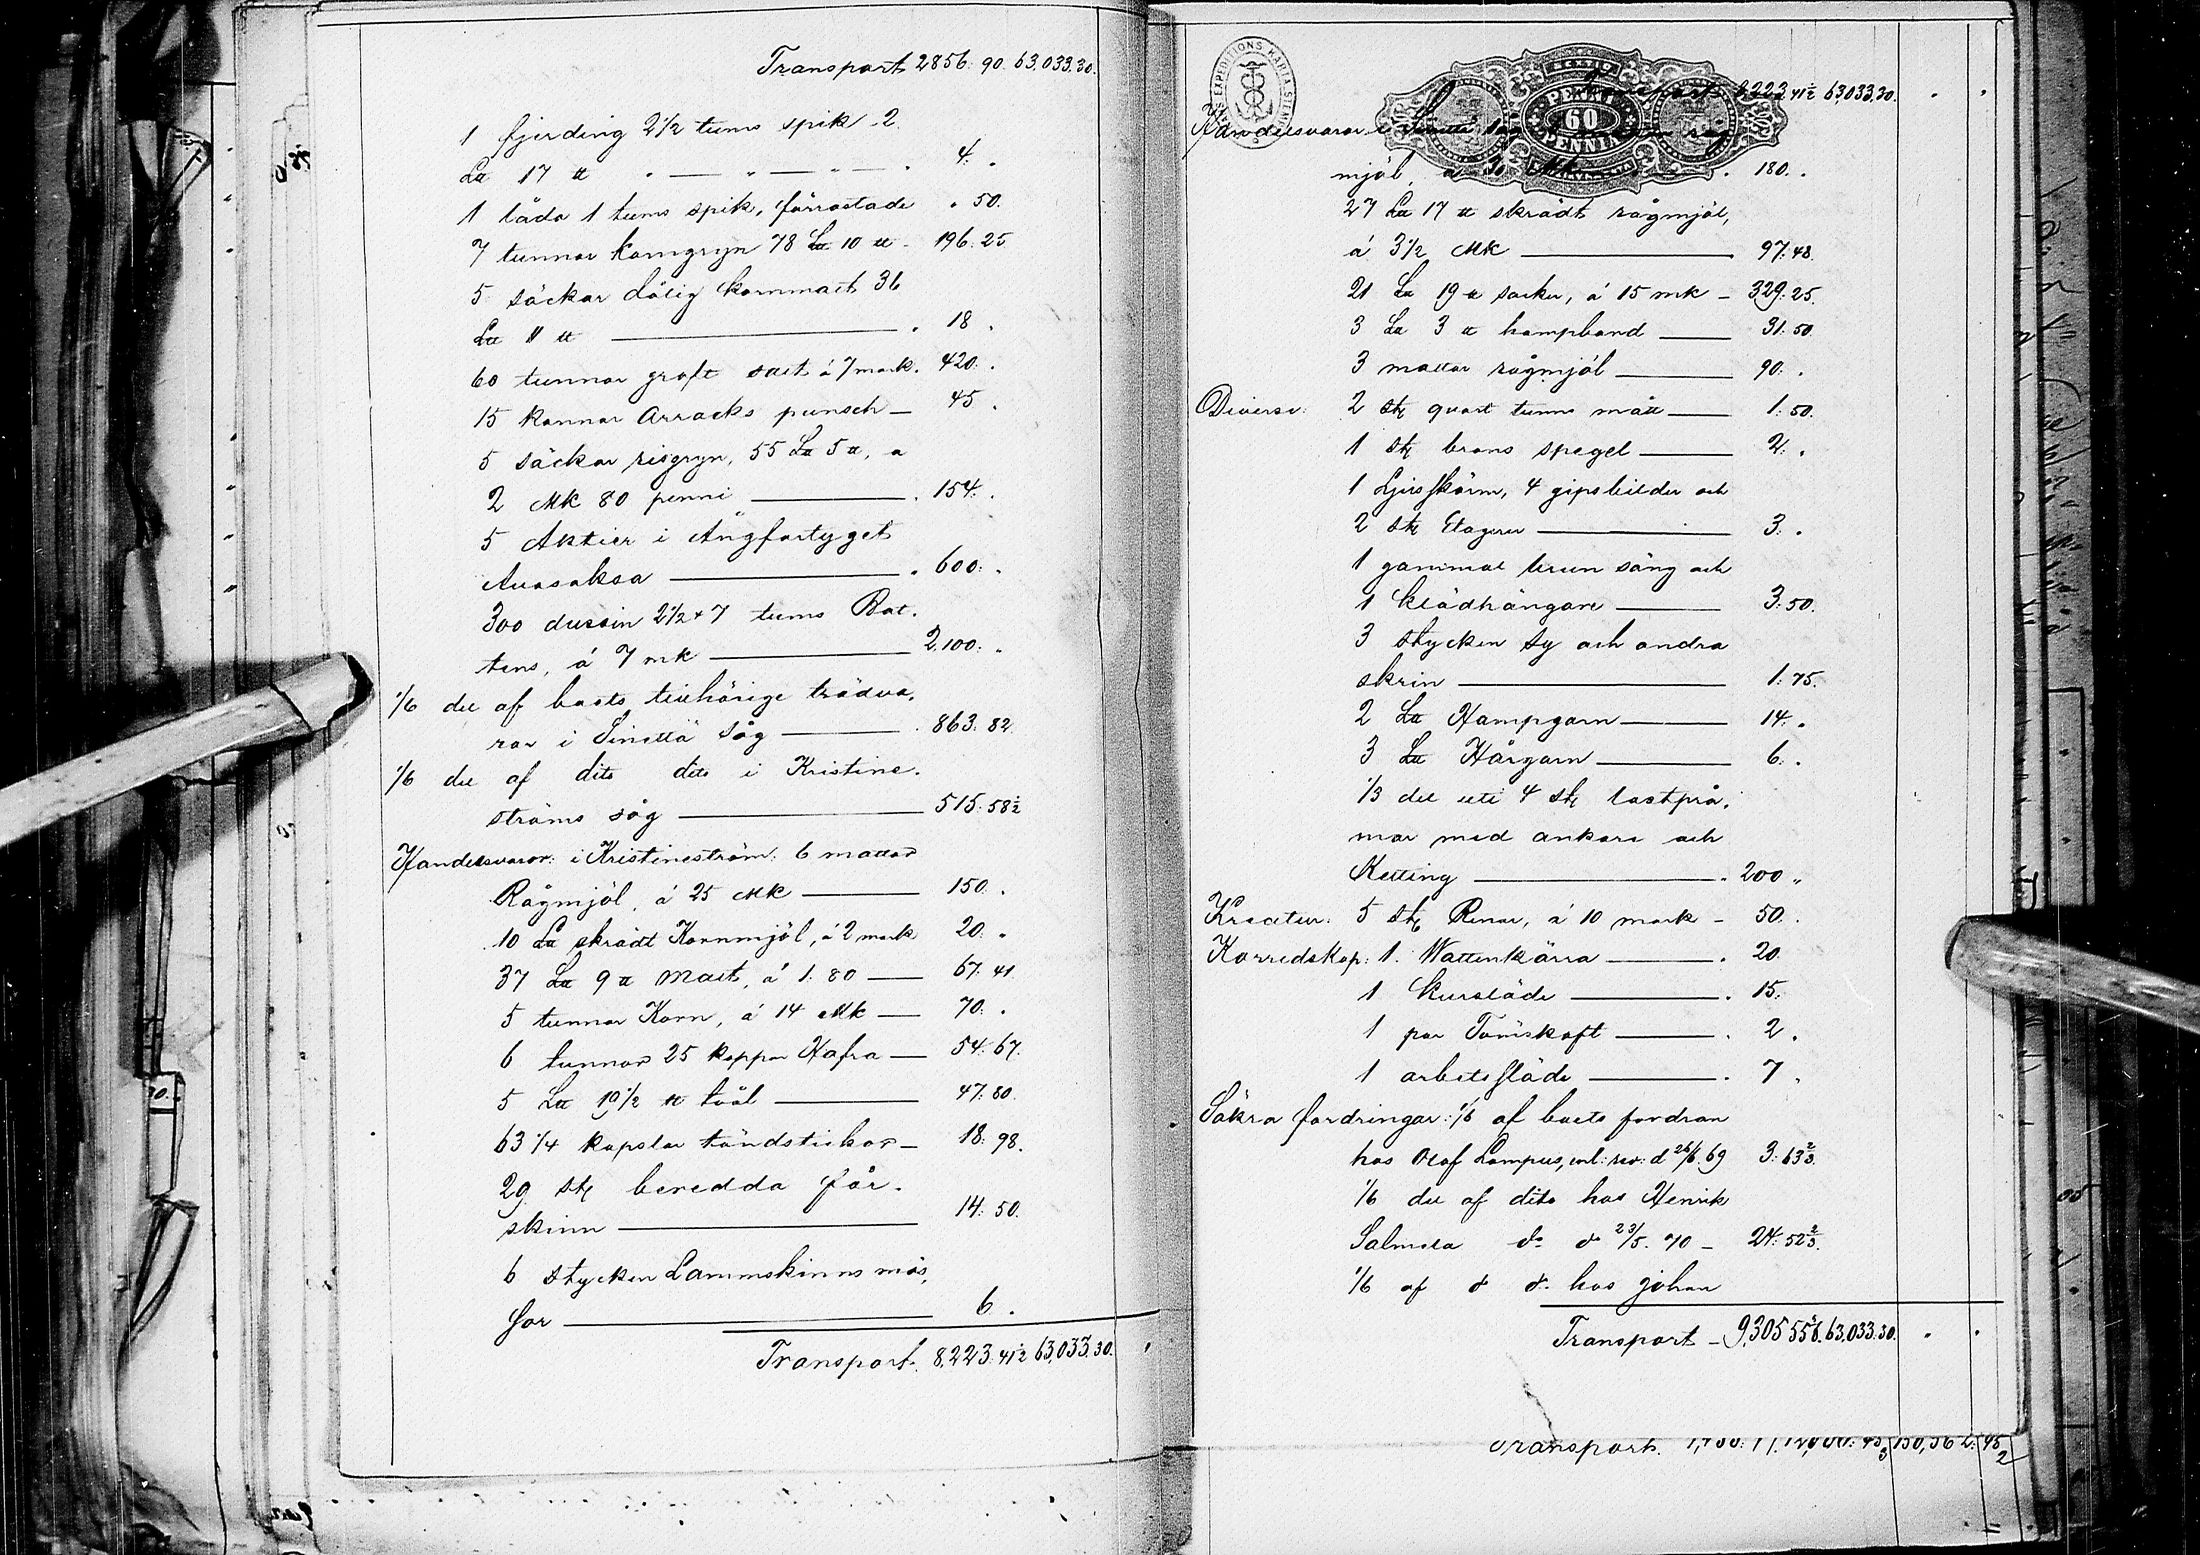 Transport 2856. 90. 63,033.30.
1 fjerding 2 1/2 tums spik 2.
La 17 ℔ " — " — " — " 4. "
1 låda 1 tums spik, förrostade " 50.
7 tunnor korngryn 78 La 10 ℔ - 196. 25
5 säckar dålig kornmalt 36
La 11 ℔ — " 18 "
60 tunnor groft salt á 7 mark. 420. "
15 kannor Arracks punsch — 45 "
5 säckar risgryn, 55 La 5 ℔, a
2 Mk 80 penni — " 154. "
5 Aktier i Ångfartyget
Avasaksa — " 600. "
300 dussin 2 1/2 + 7 tums Bat-
tens, á 7 mk — 2,100. "
1/6 del af boets tillhörige trädva-
ror i Sinettä Såg — " 863. 82.
1/6 del af dito dito i Kristine-
ströms såg — 515. 58 1/2
Handelsvaror: i Kristineström: 6 mattor
Rågmjöl, á 25 Mk — 150. "
10 La skrädt Kornmjöl, á 2 mark 20. "
37 La 9 ℔ Malt, á 1: 80 — 67. 41
5 tunnor Korn, á 14 Mk — 70. "
6 tunnor 25 kappar Hafra — 54. 67.
5 La 19 1/2 ℔ tvål — 47. 80.
63 1/4 kapslar tändstickor — 18. 98.
29 st beredda får-
skinn — 14. 50.
6 stycken Lammskinns mös-
sor — 6. "
Transport. 8,223. 41 1/2 63,033.30.
EXPEDITIONS KARTA
Transport 8,223 41 1/2 63,033.30. " "
PENNI 60 PENNIÄ
Handelsvaror i Sinettä såg 6 mattor råg
mjöl, a 30 Mk — " 180. "
27 La 17 ℔ skrädt rågmjöl,
á 3 1/2 Mk — 97. 48.
21 La 19 ℔ socker, á 15 mk — 329. 25.
3 La 3 ℔ hampband — 31. 50.
3 mattor rågmjöl — 90. "
Diverse: 2 st quart tunns mått — 1. 50.
1 st brons spegel — 2. "
1 Ljusskärm, 4 gipsbilder och
2 st Etagerer — 3. "
1 gammal brun säng och
1 klädhängare — 3. 50.
3 stycken Sy och andra
skrin — 1. 75.
2 La Hampgarn — 14. "
3 La Hårgarn — 6. "
1/3 del uti 4 st lastprå-
mar med ankare och
Ketting — " 200 "
Kreatur: 5 st Renar, á 10 mark — 50. "
Körredskap: 1 Wattenkärra — " 20.
1 kursläde — " 15.
1 par Tömskaft — " 2 "
1 arbetssläde — " 7 "
Säkra fordringar: 1/6 af boets fordran
hos Olof Lampus, enl: rev: d 26/6. 69 3. 63 2/3.
1/6 del af dito hos Henrik
Salmela do do 23/5. 70 — 24. 52 2/3.
1/6 af do do hos Johan
Transport — 9,305 55 63,033.30. " "
Transport.